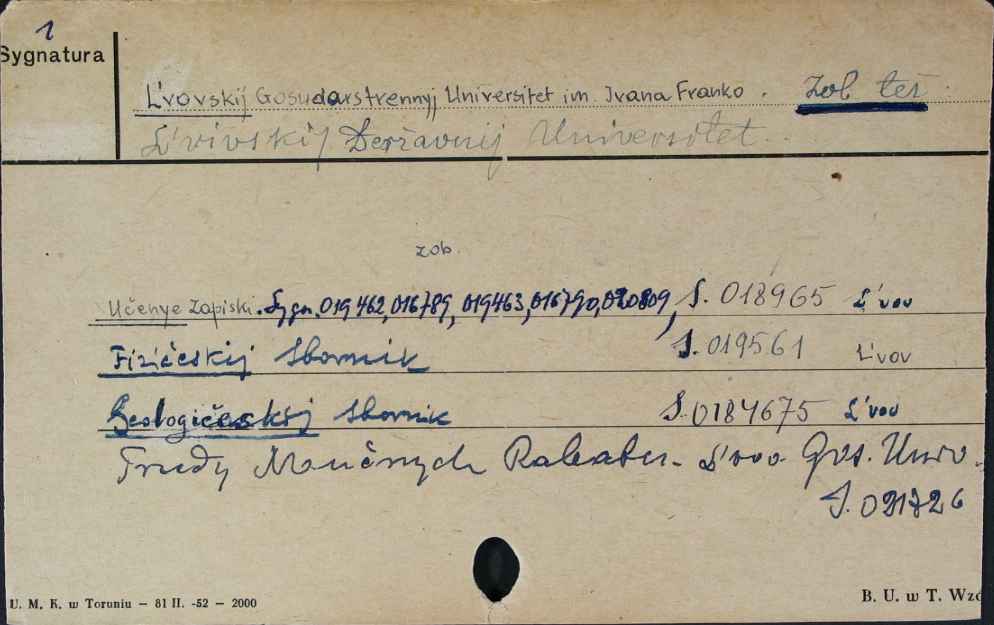 1
Sygnatura
L'vovskij Gosudarstvennyj Universitet im. Ivana Franko. Zob. też
L'vivs'kij Deržavnij Universitet.
zob.
Učenye Zapiski. Sygn. 019462, 016789, 019463, 016790, 020809, S. 018965 L'vov
Fizičeskij Sbornik S. 019561 L'vov
Geologičeskij Sbornik S. 0184675 L'vov
Trudy Naučnych L'vov Gos. Univ.
S. 021726
U. M. K. w Toruniu – 81 II. -52 – 2000
B. U. w T. Wzó